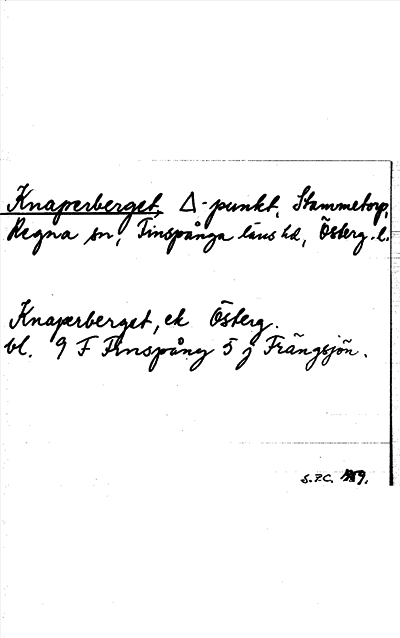 Knaperberget, Δ-punkt, Stammetorp,
Regna sn, Finspånga läns hd, Österg. l.
Knaperberget, ek Österg.
bl. 9 F Finspång 5 j Frängsjön.
S.P.C.